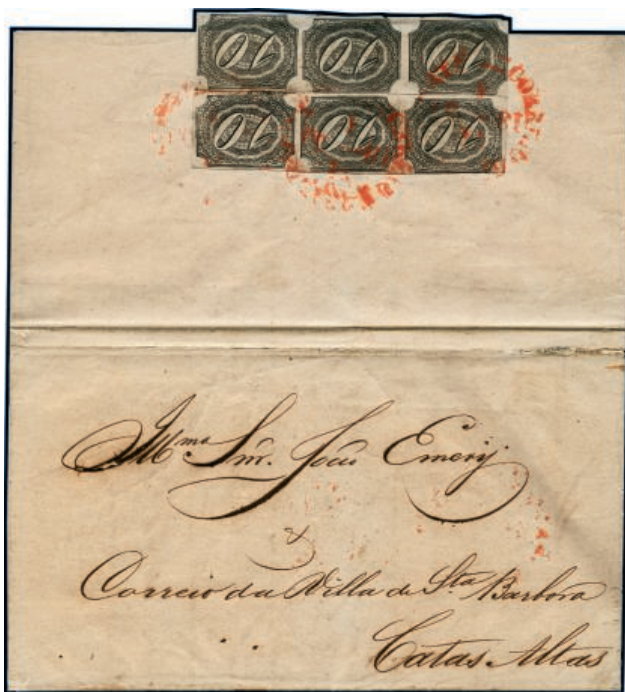 10 10 10
10 10 10
Illmo Snr. João Emery
Correio da Villa de Sta Barbora
Catas Altas